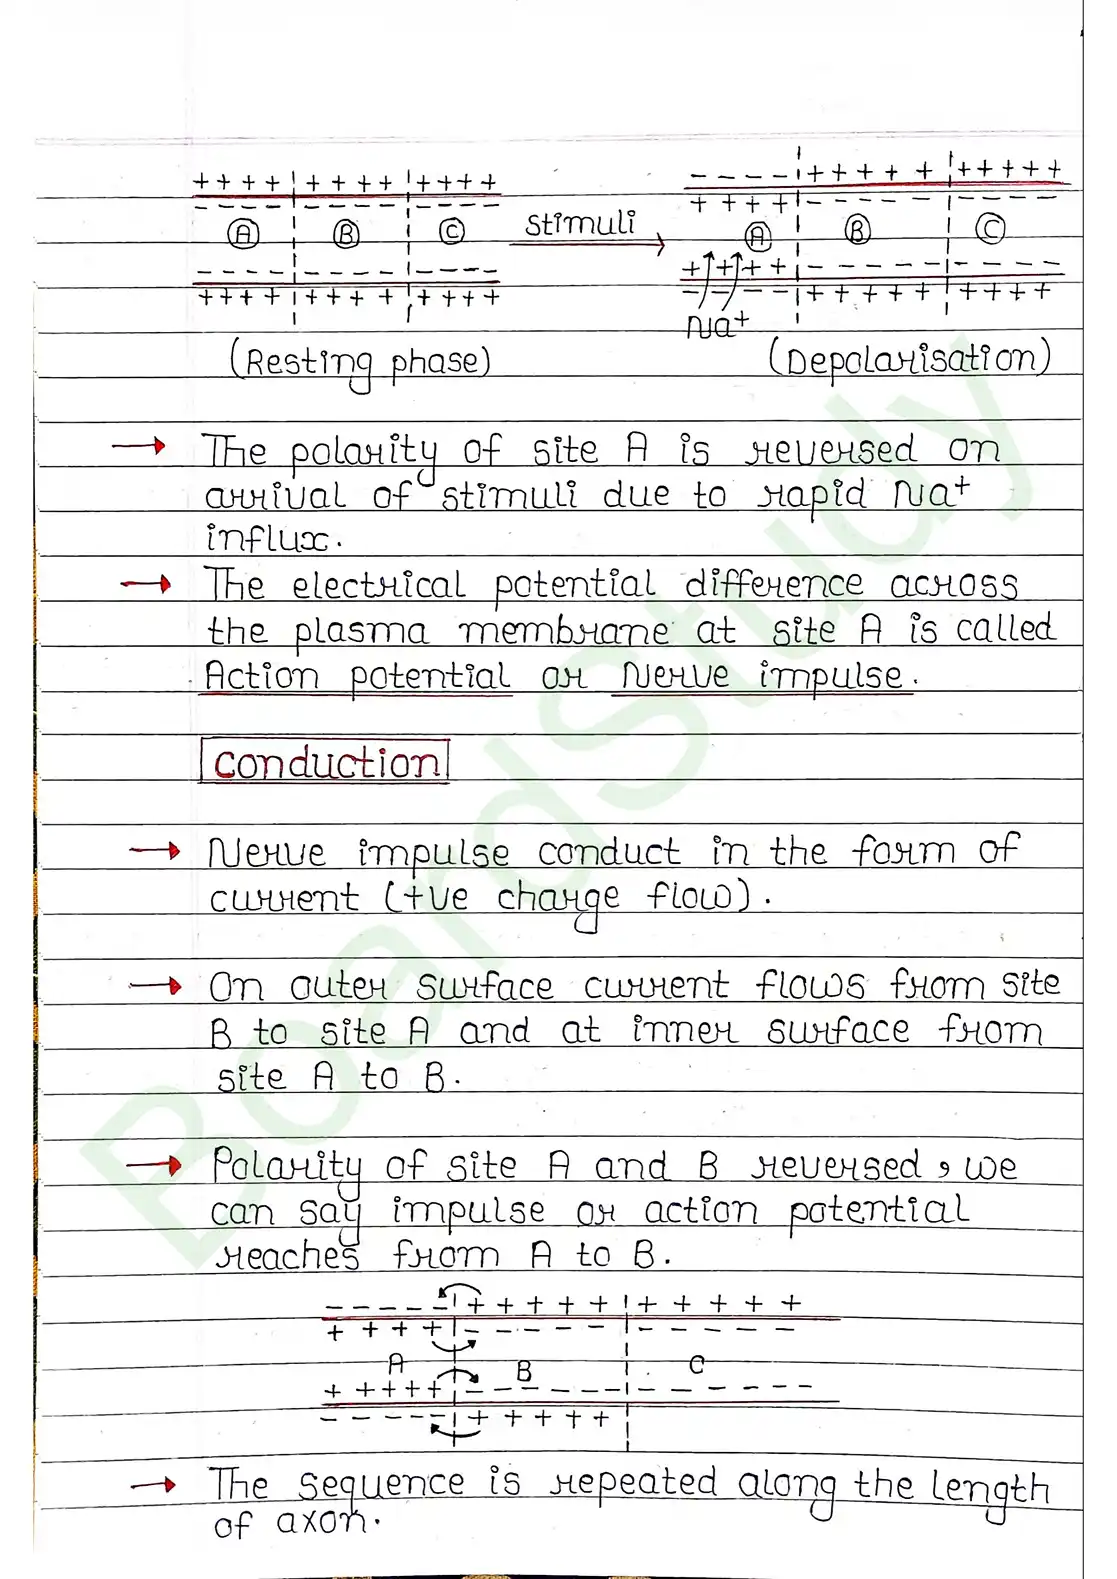 ++++ ++++ ++++
---- ---- ----
Ⓐ Ⓑ Ⓒ
---- ---- ----
++++ ++++ ++++
(Resting phase)
Stimuli
---- +++++ +++++
++++ ----- ----
Ⓐ Ⓑ Ⓒ
++++ ----- ----
---- +++++ ++++
Na+
(Depolarisation)
→ The polarity of site A is reversed on
arrival of stimuli due to rapid Na+
influx.
→ The electrical potential difference across
the plasma membrane at site A is called
Action potential or Nerve impulse.
Conduction
→ Nerve impulse conduct in the form of
current (+ve charge flow).
→ On outer surface current flows from site
B to site A and at inner surface from
site A to B.
→ Polarity of site A and B reversed, we
can say impulse or action potential
reaches from A to B.
----- +++++ +++++
++++ ----- -----
A B C
+++++ ------ ------
----- +++++
→ The sequence is repeated along the length
of axon.
BoardStudy